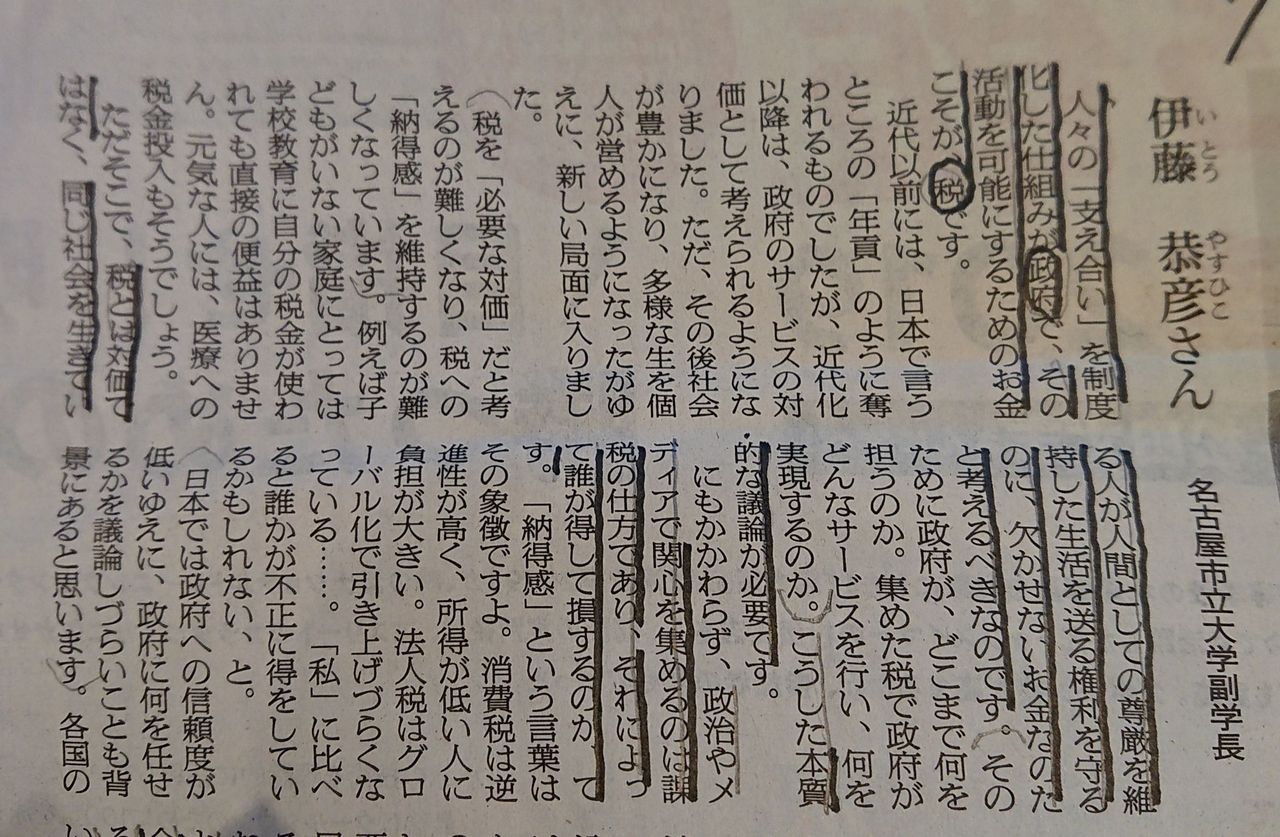 伊藤　恭彦さん
いとう　やすひこ
名古屋市立大学副学長
人々の「支え合い」を制度
化した仕組みが政府で、その
活動を可能にするためのお金
こそが、税です。
近代以前には、日本で言う
ところの「年貢」のように奪
われるものでしたが、近代化
以降は、政府のサービスの対
価として考えられるようにな
りました。ただ、その後社会
が豊かになり、多様な生を個
人が営めるようになったがゆ
えに、新しい局面に入りまし
た。
税を「必要な対価」だと考
えるのが難しくなり、税への
「納得感」を維持するのが難
しくなっています。例えば子
どもがいない家庭にとっては
学校教育に自分の税金が使わ
れても直接の便益はありませ
ん。元気な人には、医療への
税金投入もそうでしょう。
ただそこで、税とは対価で
はなく、同じ社会を生きてい
る人が人間としての尊厳を維
持した生活を送る権利を守る
のに、欠かせないお金なのだ
と考えるべきなのです。その
ために政府が、どこまで何を
担うのか。集めた税で政府が
どんなサービスを行い、何を
実現するのか。こうした本質
的な議論が必要です。
にもかかわらず、政治やメ
ディアで関心を集めるのは課
税の仕方であり、それによっ
て誰が得して損するのか、で
す。「納得感」という言葉は
その象徴ですよ。消費税は逆
進性が高く、所得が低い人に
負担が大きい。法人税はグロ
ーバル化で引き上げづらくな
っている……。「私」に比べ
ると誰かが不正に得をしてい
るかもしれない、と。
日本では政府への信頼度が
低いゆえに、政府に何を任せ
るかを議論しづらいことも背
景にあると思います。各国の